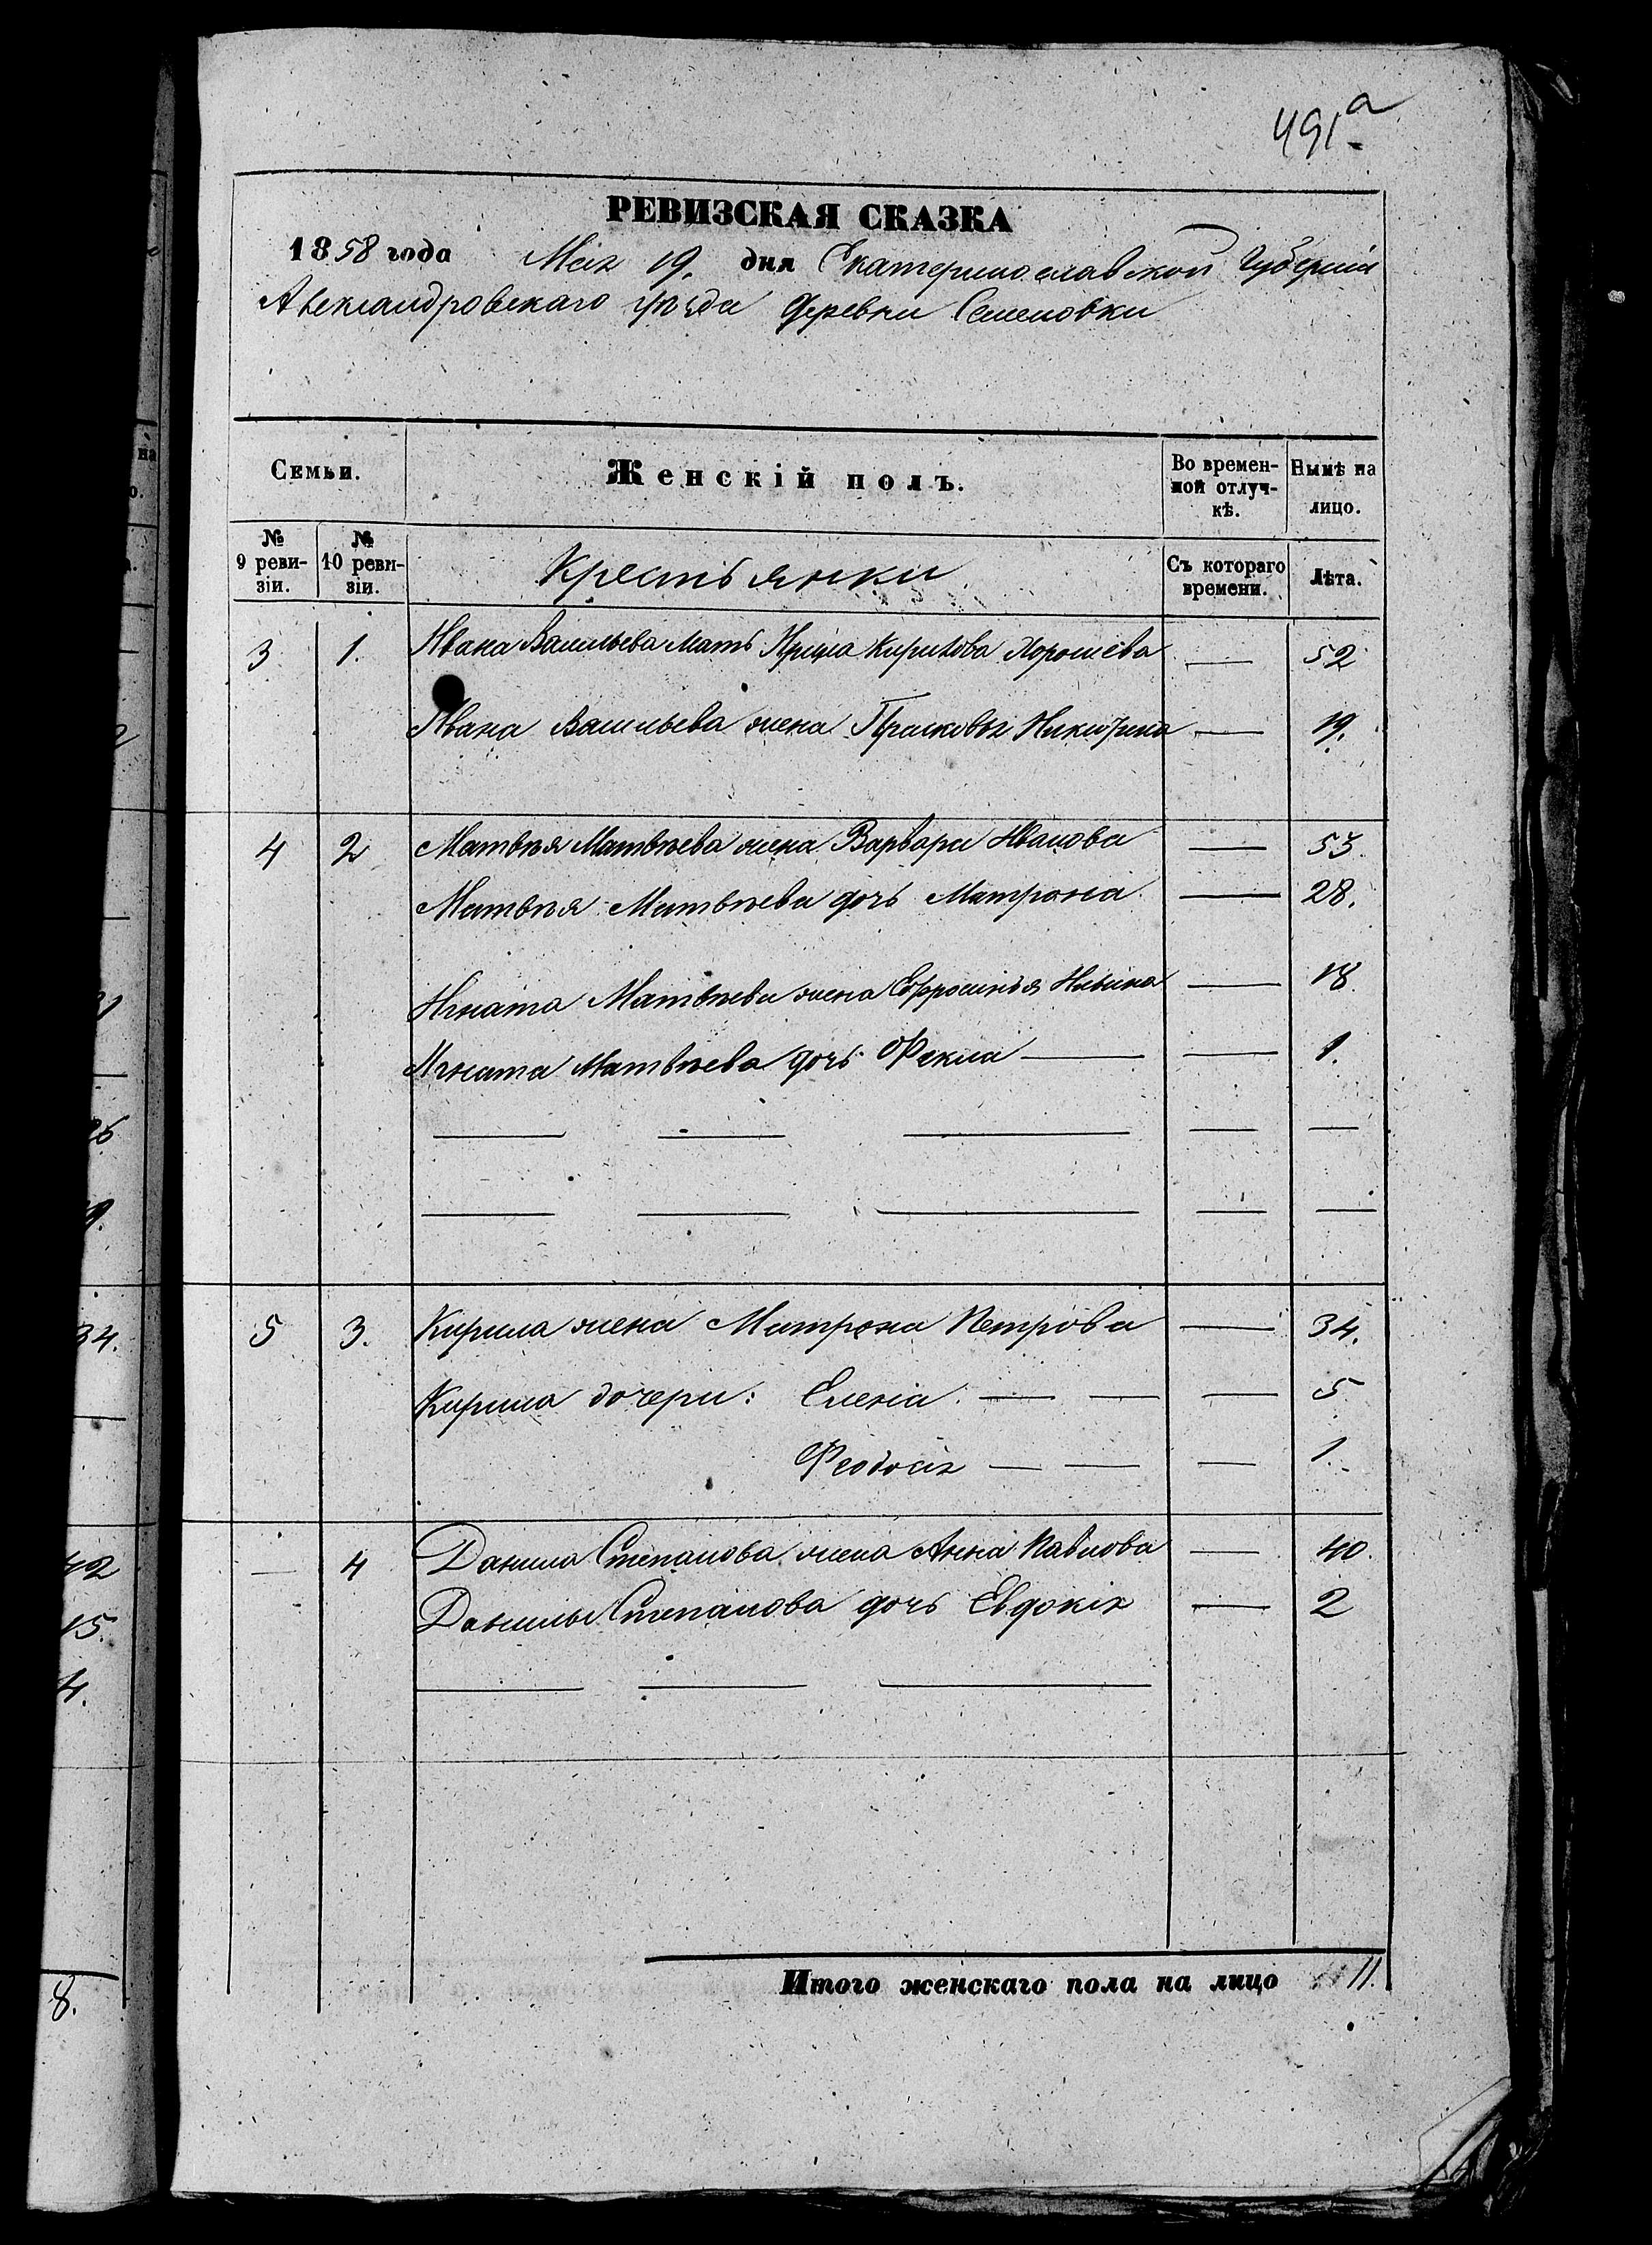 491а
РЕВИЗСКАЯ СКАЗКА
1858 года Мая 19. дня Екатеринославской Губерніи
Александровскаго уѣзда деревни Семеновки
Семьи. Женскій полъ. Во времен-ной отлуч-кѣ. Нынѣ на лицо.
№ 9 реви-зіи. № 10 реви-зіи. Крестьянки Съ котораго времени. Лѣта.
3 1. Ивана Васильева мать Ирина Кирилова — 52
Ивана Васильева жена Прасковья Никитина — 19.
4 2 Матвѣя Матвѣева жена Варвара Иванова — 53.
Матвѣя Матвѣева дочь Матрона — 28.
Игната Матвѣева жена Ефросинья Ильина — 18.
Игната Матвѣева дочь Фекла — — 1.
— — — — —
— — — — —
5 3. Кирила жена Матрона Петрова — 34.
Кирила дочери: Елена — — — 5
Феодосія — — — 1.
— 4 Данила Степанова жена Анна Павлова — 40.
Данилы Степанова дочь Евдокія — 2
— — —
Итого женскаго пола на лицо 11.
21
26
9.
34.
42
15.
4.
8.